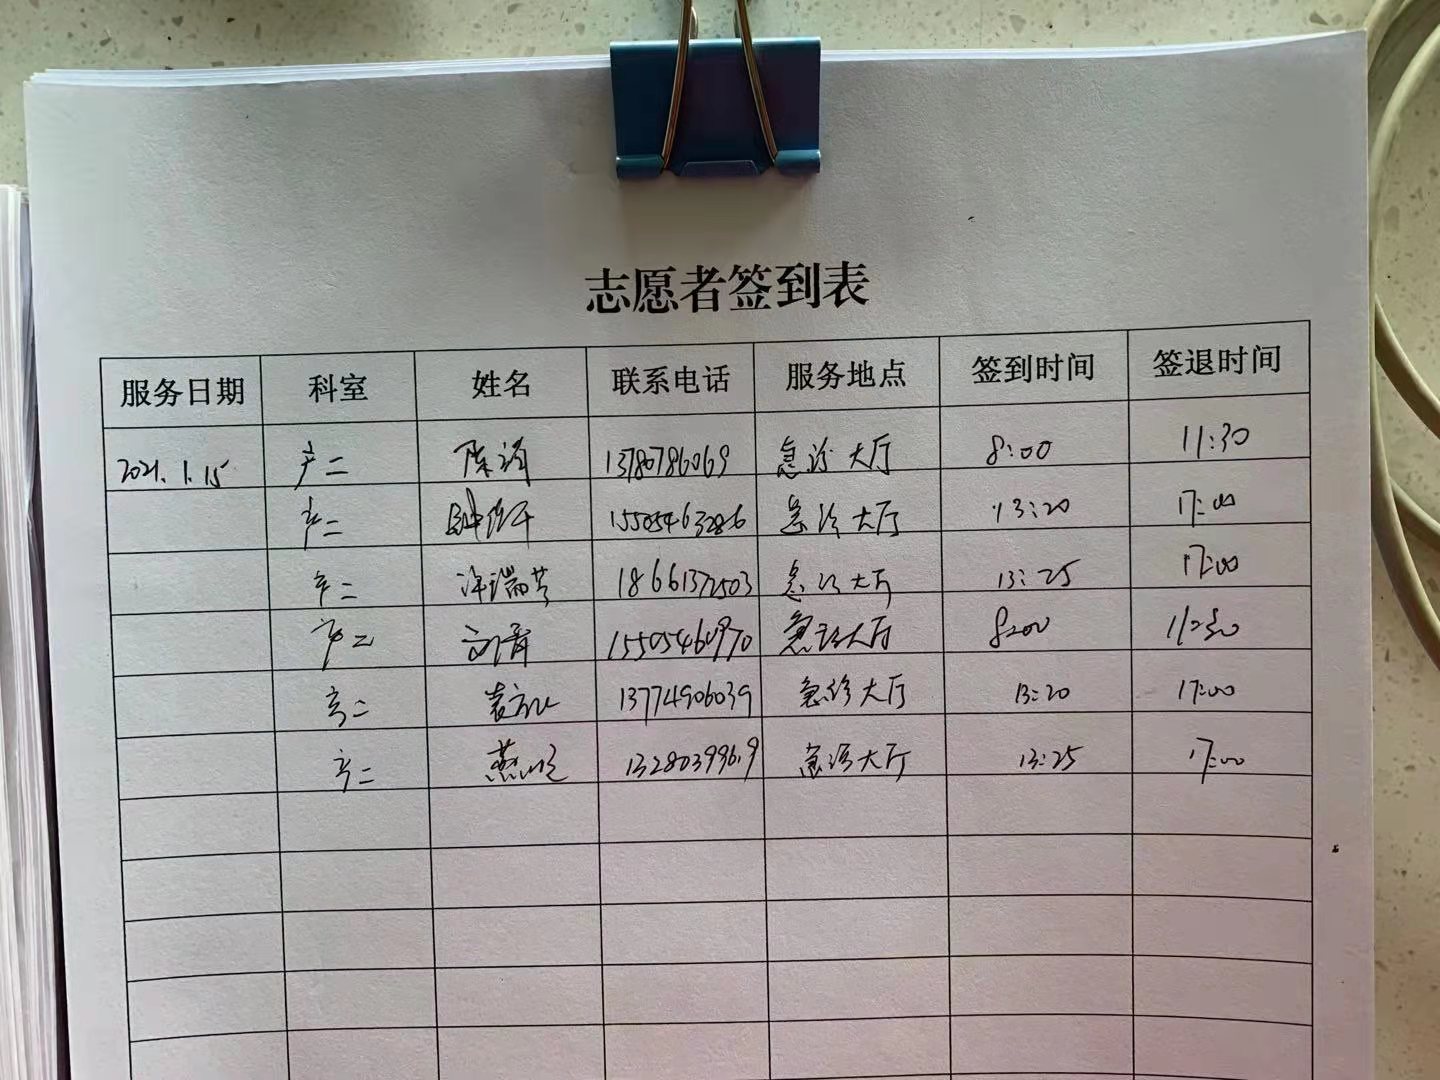 志愿者签到表
服务日期 科室 姓名 联系电话 服务地点 签到时间 签退时间
2021.1.15 产二 陈 13780786069 急诊大厅 8:00 11:30
产二 急诊大厅 13:20 17:00
产二 许瑞芳 18661372503 急诊大厅 13:25 17:00
产二 刘青 急诊大厅 8:00 11:30
产二 袁 13774906039 急诊大厅 13:20 17:00
产二 燕 13280399619 急诊大厅 13:25 17:00